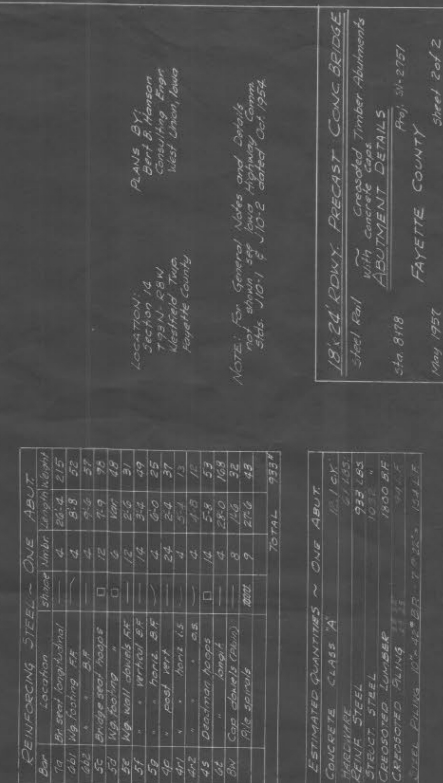 REINFORCING STEEL ~ ONE ABUT.
Bar Location Shape No. Br. Length Weight
7a Br. seat longitudinal 4 26'-4 215
6b1 Wg footing F.F. 4 8'-8 52
6b2 " " B.F. 4 9'-6 57
5c Bridge seat hoops 12 7-9
5d Wg footing " 6 Var. 48
5e Wg Wall dowels F.F. 12 2-6 31
5f " " vertical B.F. 14 3-4 49
5g " " horiz. B.F. 4 6-0 25
4p " post vert. 24 2-4 37
4n1 " " horiz. i.s. 4
4n2 " " " o.s. 4
4s Deadman hoops 14 5-8 53
6t " longit. 4 28-0 168
8N Cap dowels (Plain) 8 1-6 32
Pile spirals 9 27-6 43
TOTAL 933#
ESTIMATED QUANTITIES ~ ONE ABUT.
CONCRETE CLASS "A" C.Y.
HARDWARE LBS.
REINF. STEEL 933 LBS
STRUCT. STEEL "
CREOSOTED LUMBER 1800 B.F.
CREOSOTED PILING
STEEL PILING
LOCATION:
Section 14
T93N-R8W
Westfield Twp.
Fayette County
PLANS BY:
Bert B. Hanson
Consulting Engr.
West Union, Iowa
NOTE: For General Notes and Details
not shown see Iowa Highway Comm.
Stds. J10-1 & J10-2 dated Oct. 1954.
18'x24' RDWY. PRECAST CONC. BRIDGE
Steel Rail with Creosoted Timber Abutments
with Concrete Caps.
ABUTMENT DETAILS
Sta. 8+78 Proj. SN-2751
FAYETTE COUNTY
May 1957 Sheet 2 of 2